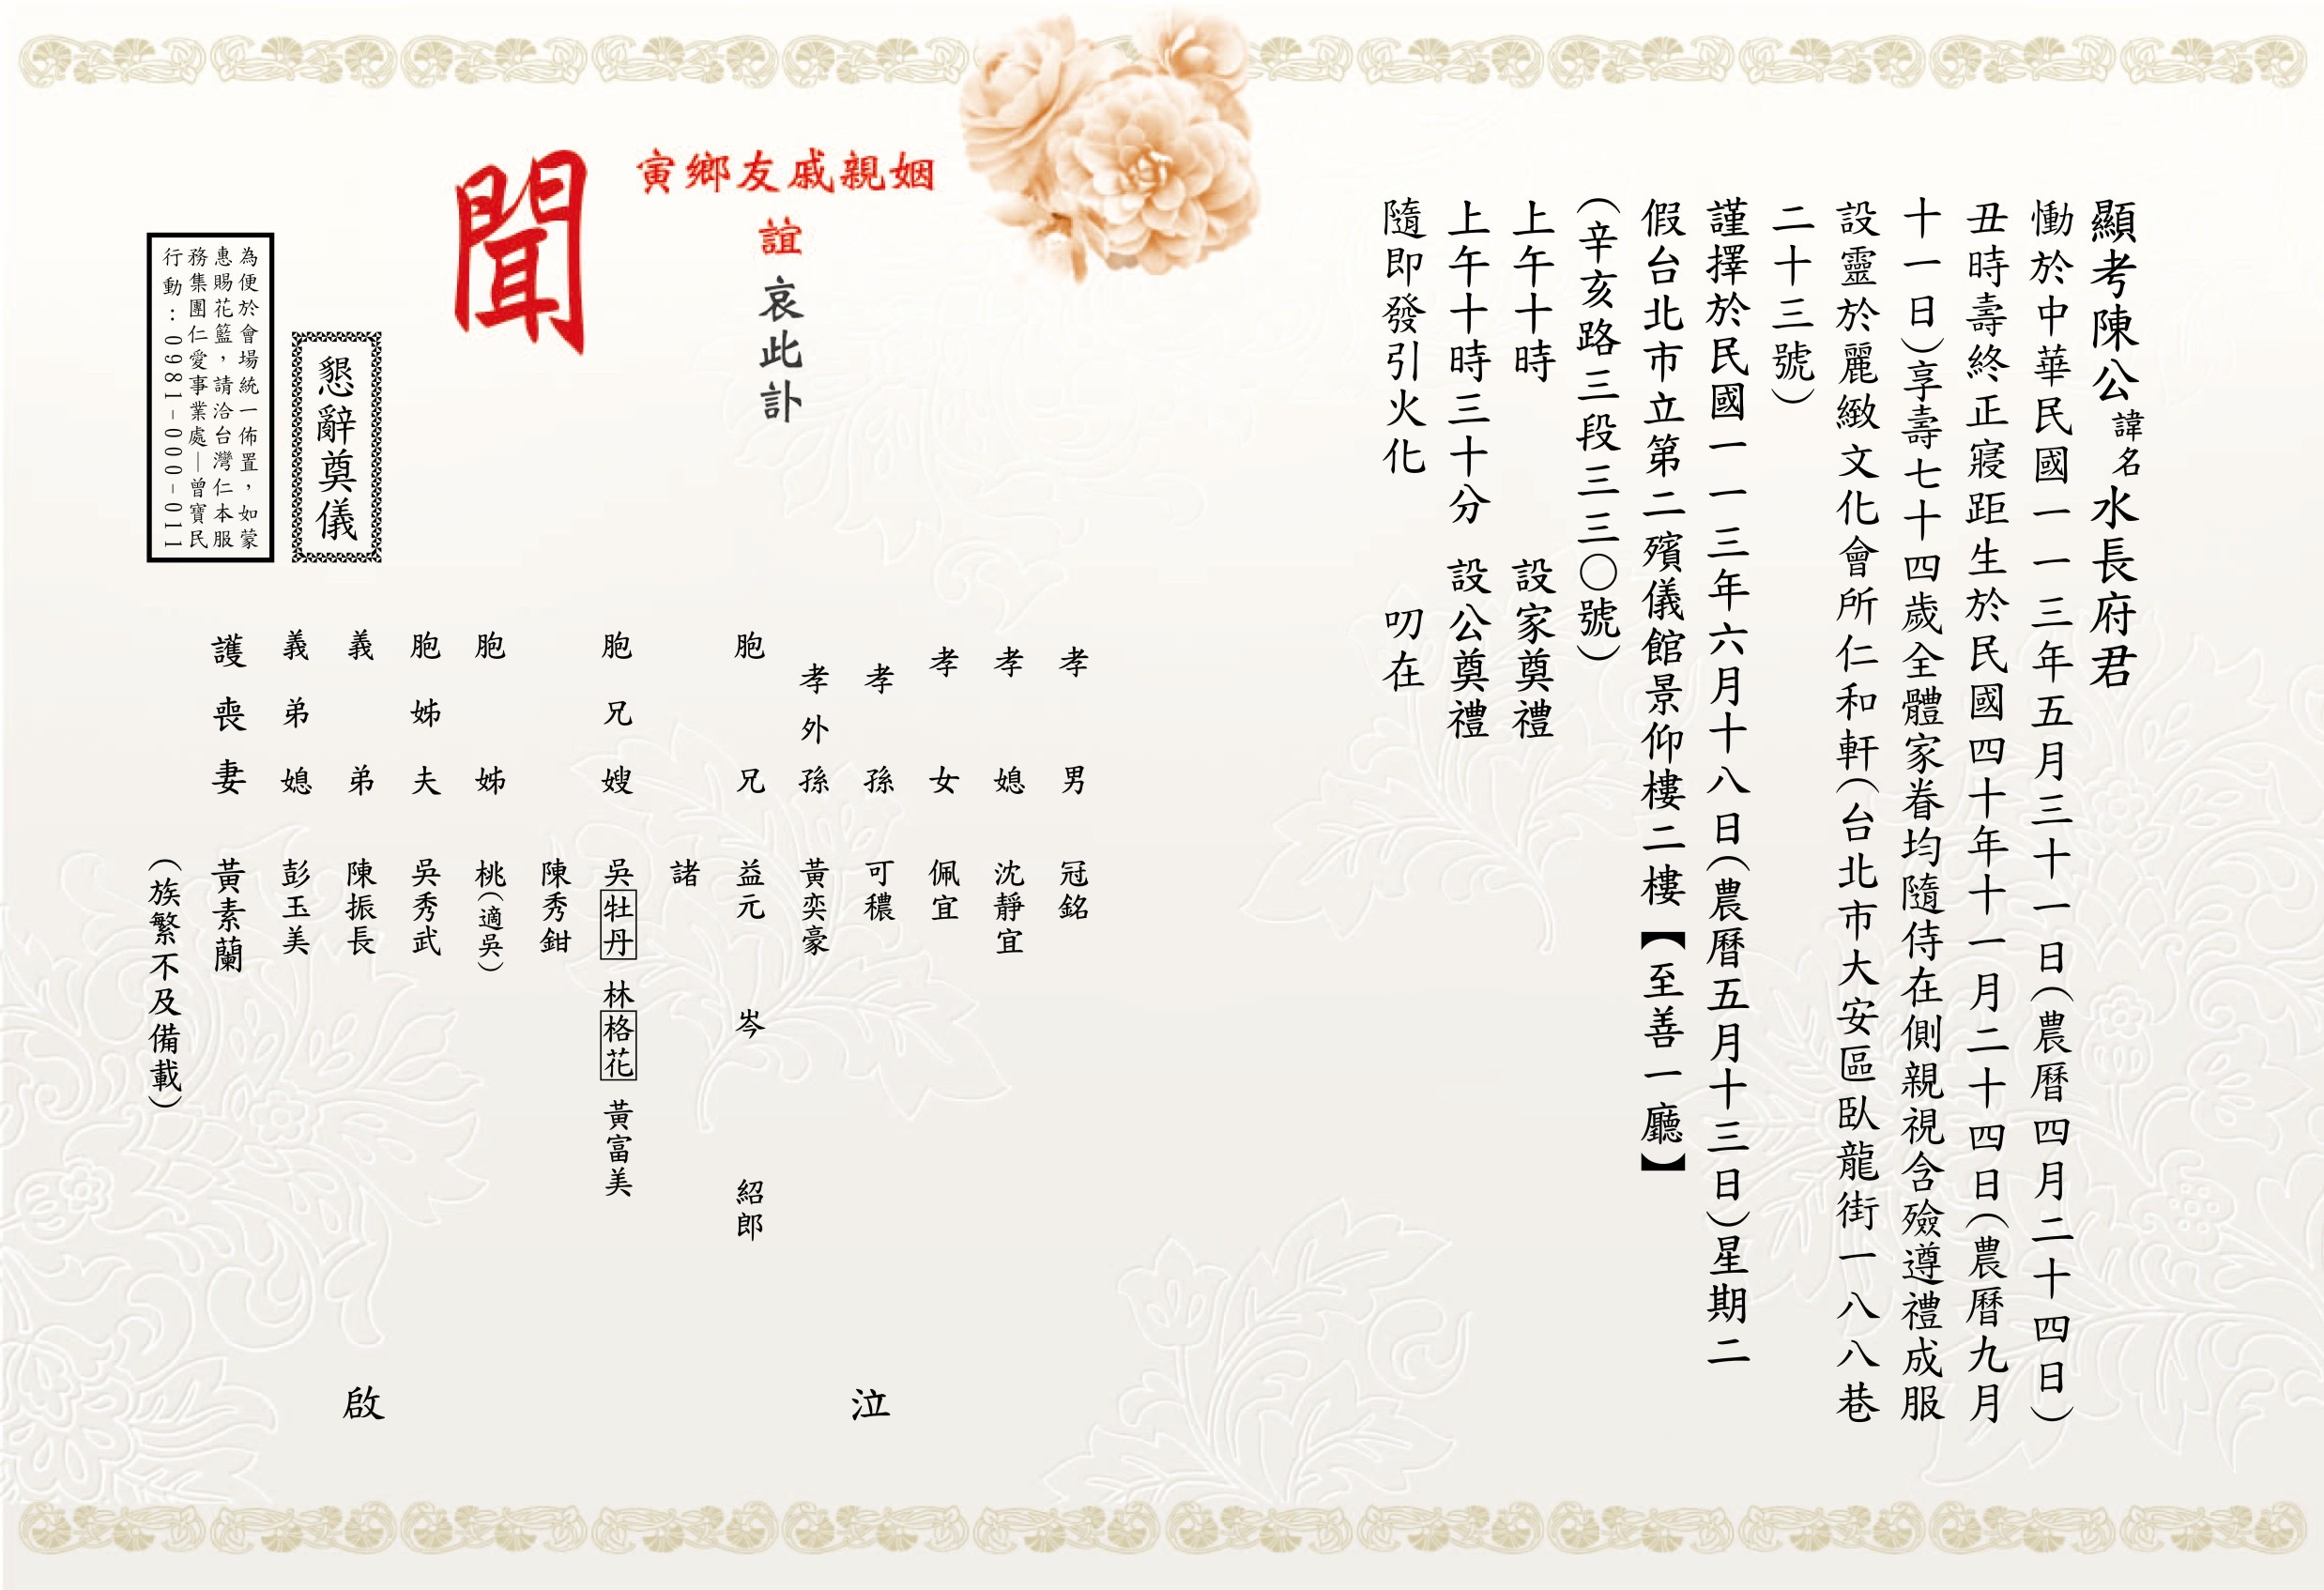 顯考陳公諱名水長府君
慟於中華民國一一三年五月三十一日(農曆四月二十四日)
丑時壽終正寢距生於民國四十年十一月二十四日(農曆九月
十一日)享壽七十四歲全體家眷均隨侍在側親視含殮遵禮成服
設靈於麗緻文化會所仁和軒(台北市大安區臥龍街一八八巷
二十三號)
謹擇於民國一一三年六月十八日(農曆五月十三日)星期二
假台北市立第二殯儀館景仰樓二樓【至善一廳】
(辛亥路三段三三○號)
上午十時 設家奠禮
上午十時三十分 設公奠禮
隨即發引火化 叨在
寅鄉友戚親姻
誼
哀此訃
聞
孝男 冠銘
孝媳 沈靜宜
孝女 佩宜
孝孫 可穠
孝外孫 黃奕豪
胞兄 益元 岑 紹郎
諸
胞兄嫂 吳牡丹 林格花 黃富美
陳秀鉗
胞姊 桃(適吳)
胞姊夫 吳秀武
義弟 陳振長
義弟媳 彭玉美
護喪妻 黃素蘭
(族繁不及備載)
泣
啟
懇辭奠儀
為便於會場統一佈置,如蒙
惠賜花籃,請洽台灣仁本服
務集團仁愛事業處—曾寶民
行動:0981-000-011